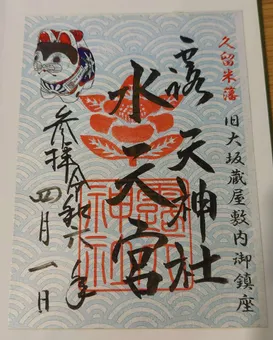 久留米藩
旧大坂蔵屋敷内御鎮座
露天神社
水天宮
参拝
令和六年
四月一日
露天
神社